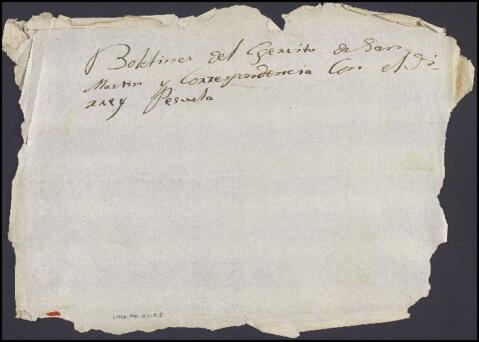 Boletines del Egercito de San
Martin y Correspondencia Con el Vi-
rrey Pesuela